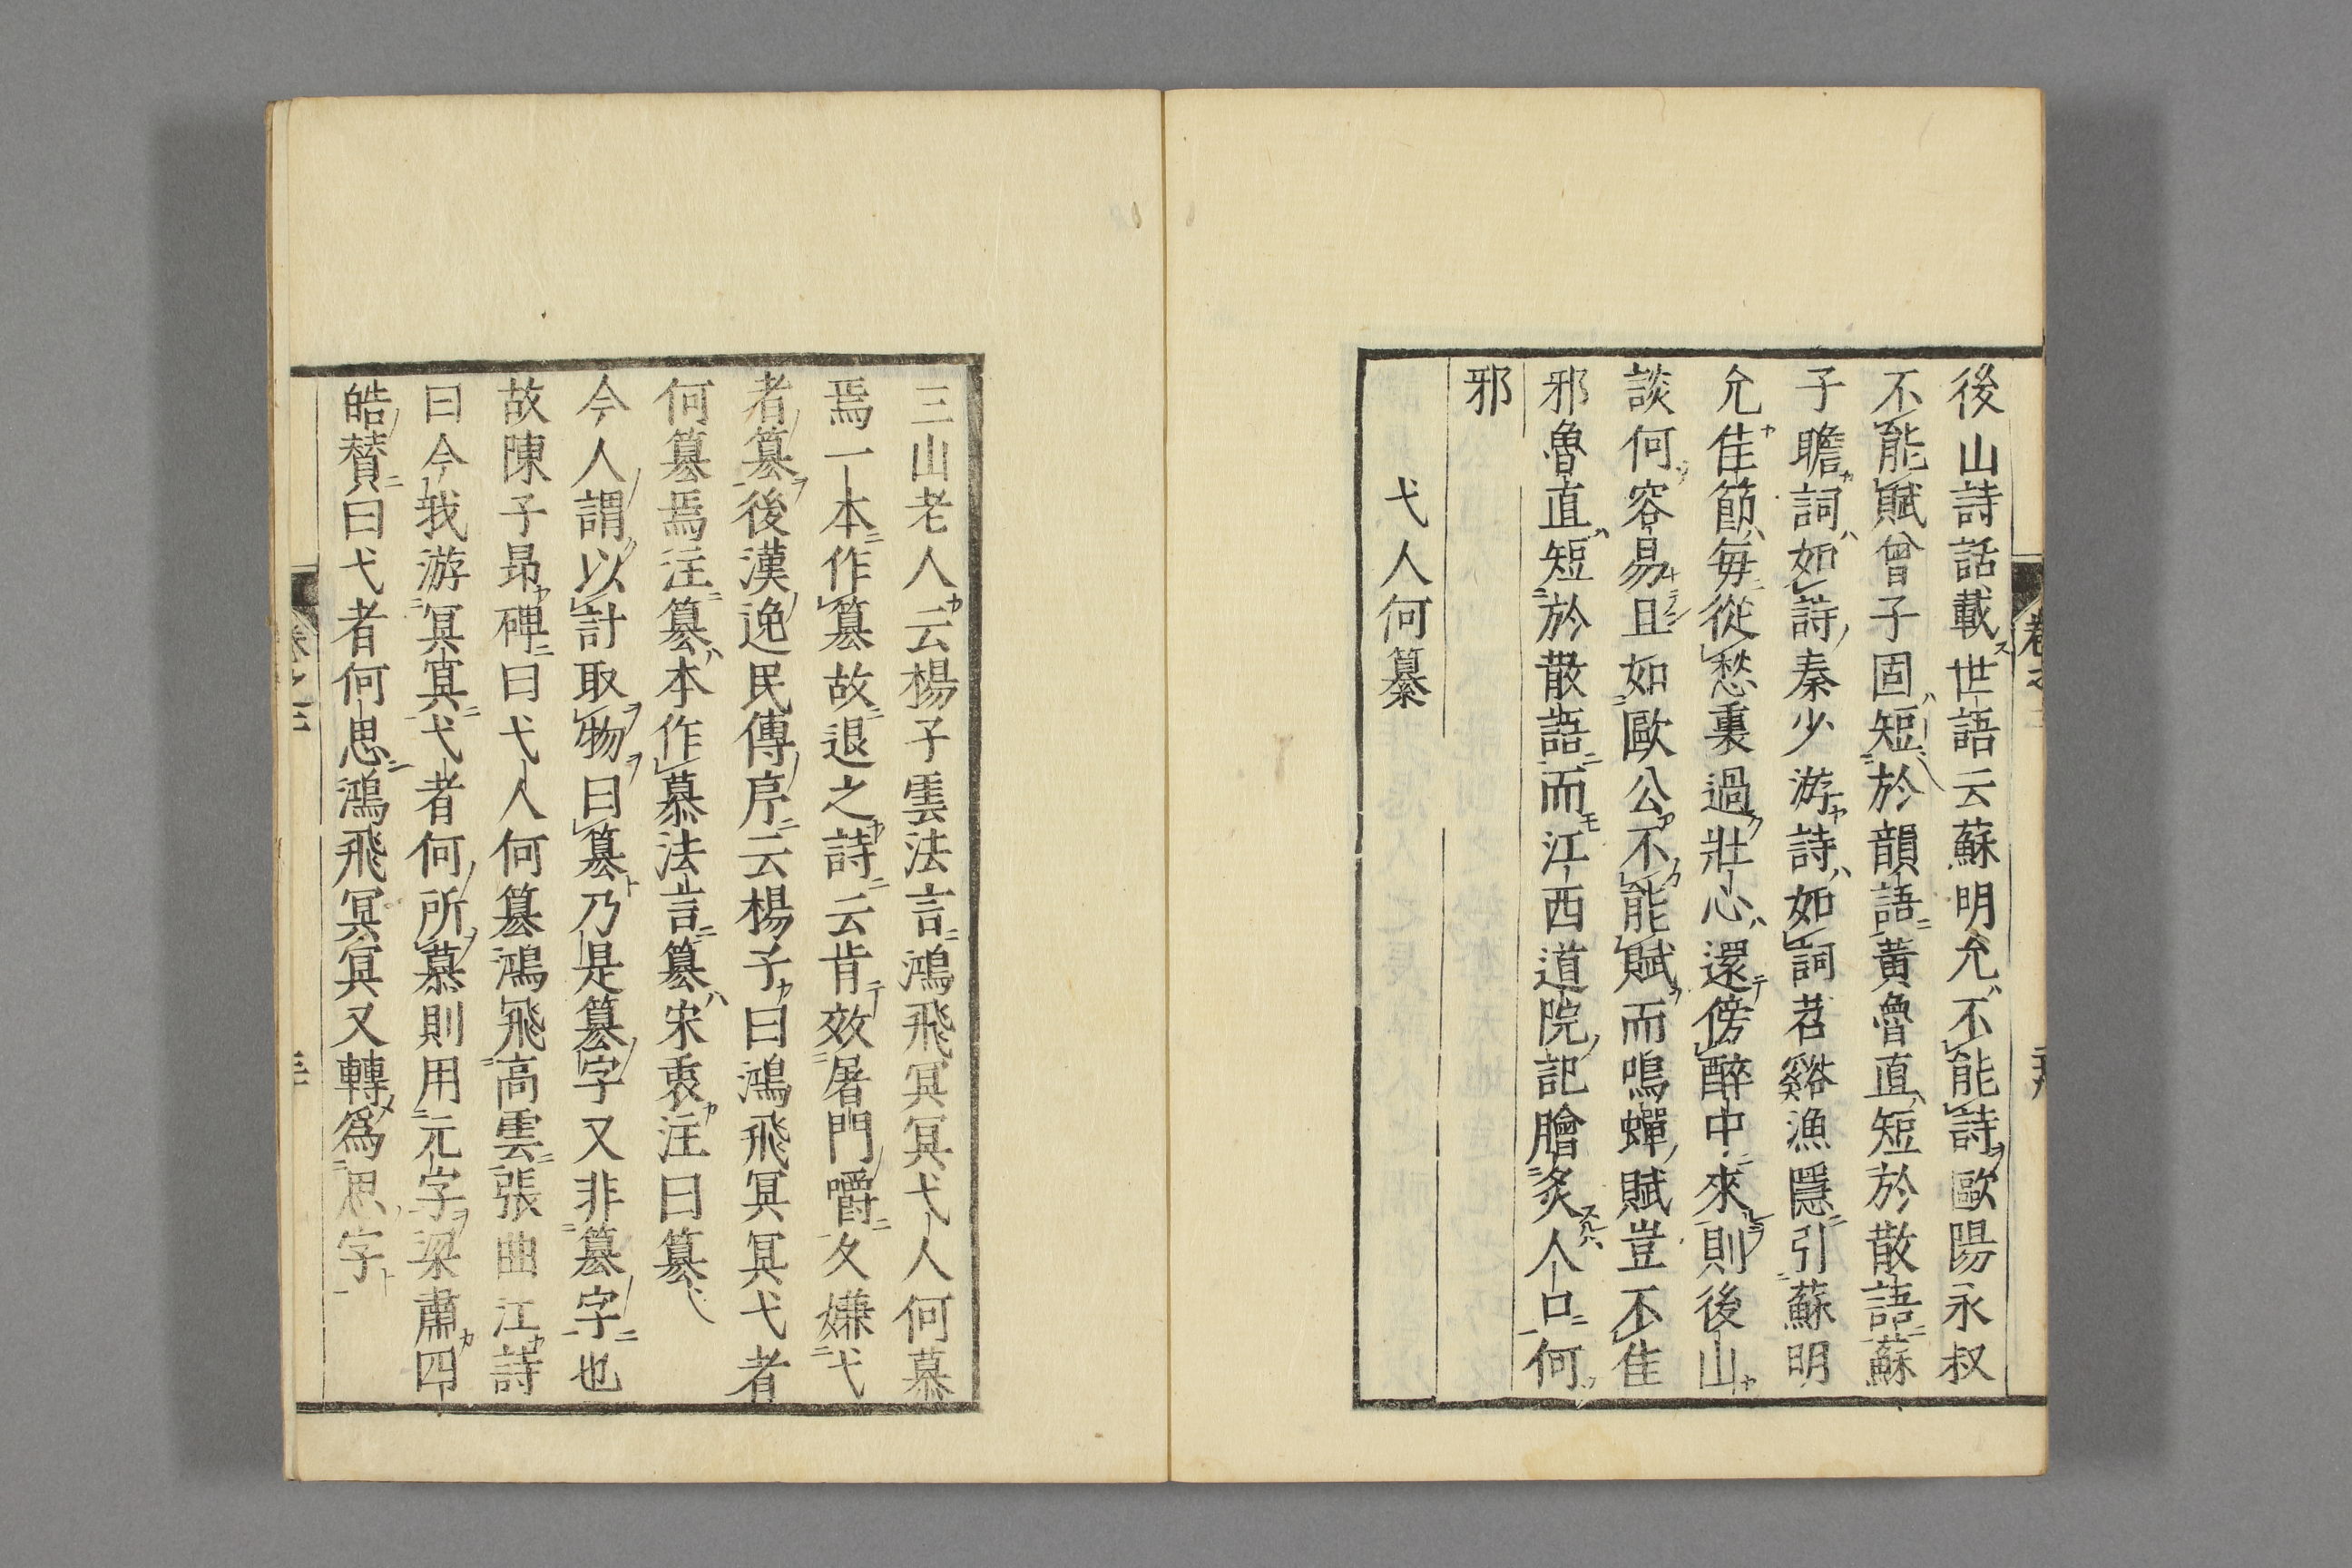 後山詩話載世語云蘇明允不能詩歐陽永叔
不能賦曾子固短於韻語黃魯直短於散語蘇
子瞻詞如詩秦少游詩如詞苕谿漁隱引蘇明
允佳節每從愁裏過壯心還傍醉中來則後山
談何容易且如歐公不能賦而鳴蟬賦豈不佳
邪魯直短於散語而江西道院記膾炙人口何
邪
弋人何纂
三山老人云楊子雲法言鴻飛冥冥弋人何慕
焉一本作篡故退之詩云肯效屠門嚼久嫌弋
者篡後漢逸民傳序云楊子曰鴻飛冥冥弋者
何篡焉注篡本作慕法言篡宋衷注曰篡
今人謂以計取物曰篡乃是篡字又非篡字也
故陳子昂碑曰弋人何篡鴻飛高雲張曲江詩
曰今我游冥冥弋者何所慕則用元字梁肅四
皓贊曰弋者何思鴻飛冥冥又轉爲思字